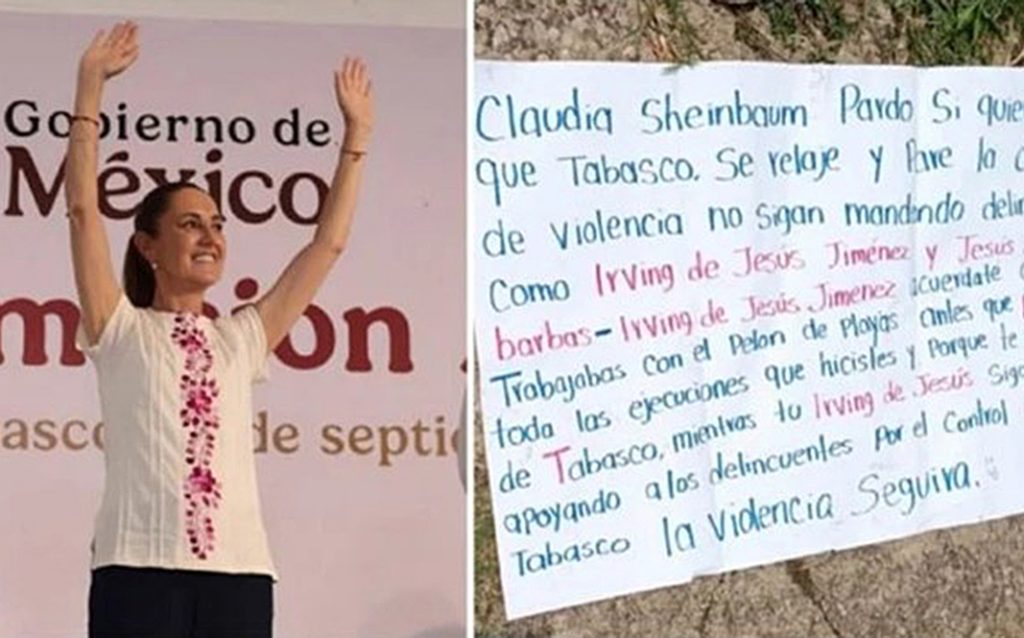 Gobierno de
México
ción
de septi
Claudia Sheinbaum Pardo Si
que Tabasco. Se relaje y Pare la
de violencia no sigan mandando
Como Irving de Jesús Jiménez y Jesús
barbas - Irving de Jesús Jimenez acuerdate
Trabajabas con el Pelon de Playas antes que
toda las ejecuciones que hicistes y Porque te
de Tabasco, mientras tu Irving de Jesús
apoyando a los delincuentes por el Control
Tabasco la violencia Seguira.